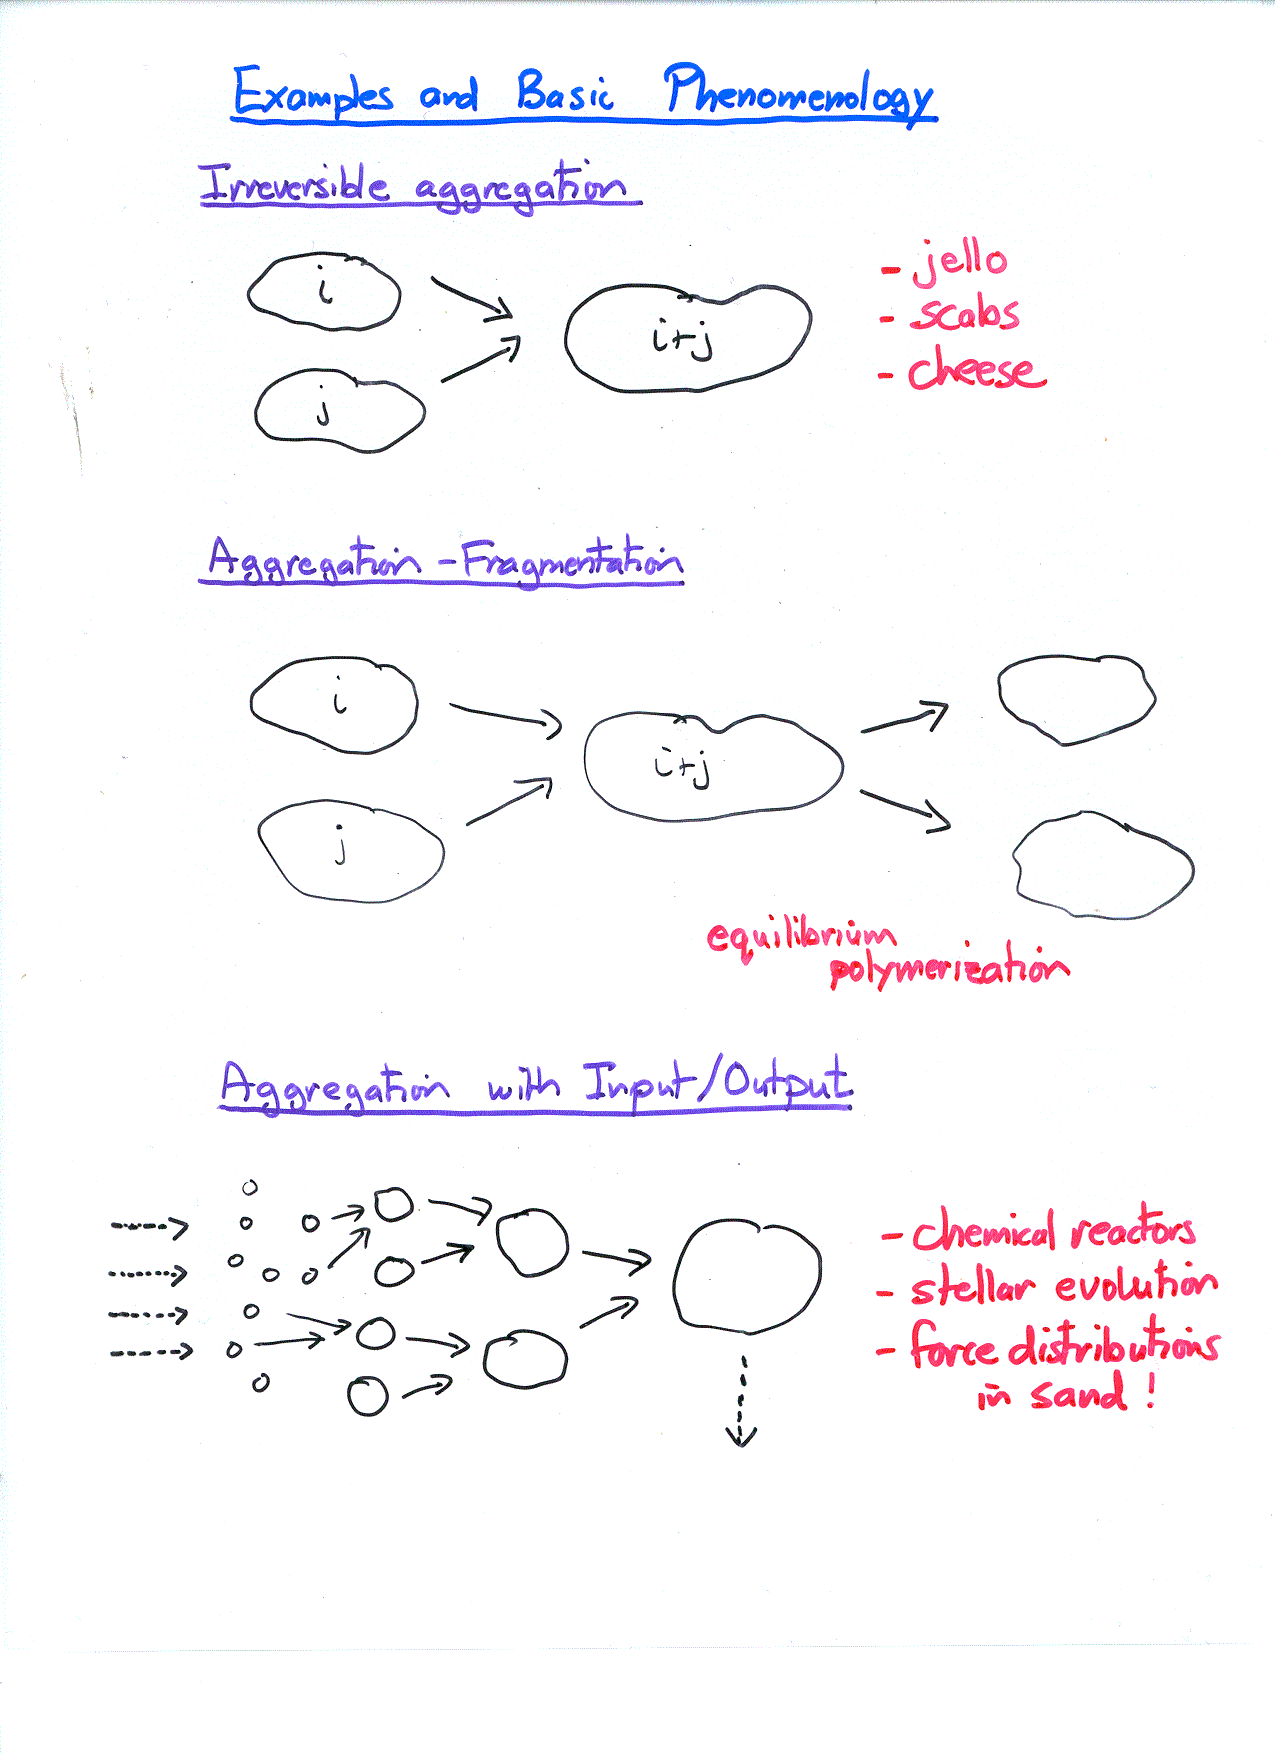 Examples and Basic Phenomenology
Irreversible aggregation
i
j
i+j
- jello
- scabs
- cheese
Aggregation - Fragmentation
i
j
i+j
equilibrium
polymerization
Aggregation with Input/Output
- chemical reactors
- stellar evolution
- force distributions
in sand!